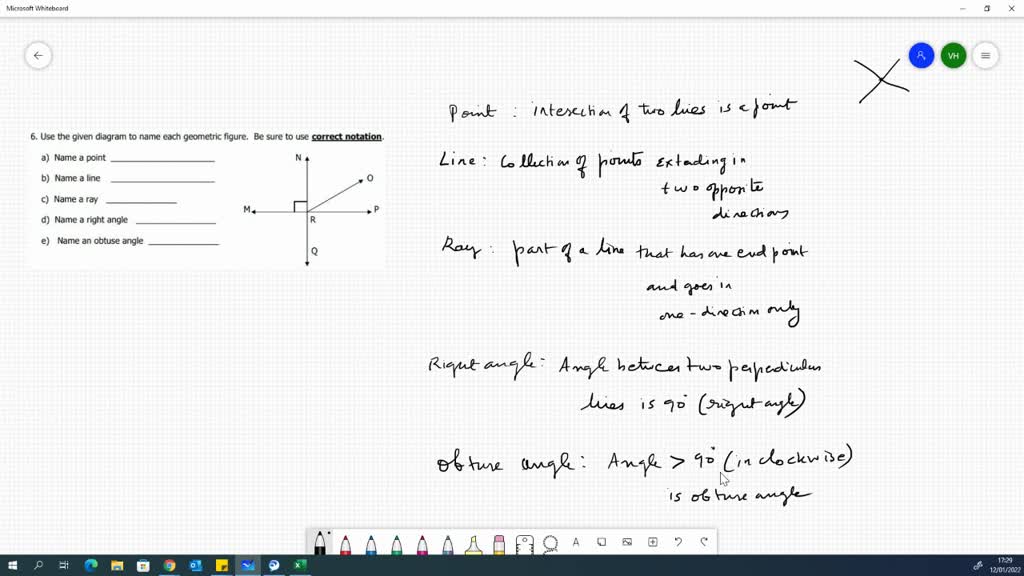 Microsoft Whiteboard
VH
6. Use the given diagram to name each geometric figure. Be sure to use correct notation.
a) Name a point
b) Name a line
c) Name a ray
d) Name a right angle
e) Name an obtuse angle
N
O
M
P
R
Q
Point : intersection of two lines is a point
Line : Collection of points extending in
two opposite
directions
Ray : part of a line that has one end point
and goes in
one-direction only
Right angle : Angle between two perpendicular
lines is 90° (right angle)
obtuse angle : Angle > 90° (in clockwise)
is obtuse angle
A
17:29
12/01/2022